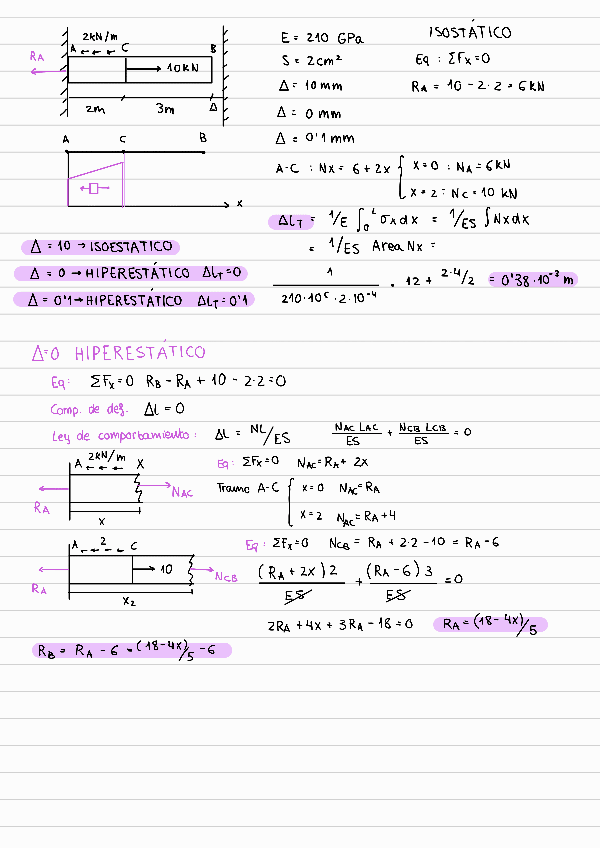 2kN/m
A C B
RA
10KN
2m 3m Δ
E = 210 GPa
S = 2cm²
Δ = 10 mm
Δ = 0 mm
Δ = 0'1 mm
ISOSTÁTICO
Eq : ΣFx=0
RA = 10 - 2·2 = 6 kN
A C B
x
A-C : Nx = 6 + 2x { x=0 : NA = 6KN
x = 2 : Nc = 10 KN
ΔLT = 1/E ∫₀ᴸ σx dx = 1/ES ∫Nxdx
= 1/ES Area Nx =
1 / 210·10⁶·2·10⁻⁴ · 12 + 2·4/2 = 0'38·10⁻³ m
Δ = 10 → ISOESTATICO
Δ = 0 → HIPERESTÁTICO ΔLT=0
Δ = 0'1 → HIPERESTÁTICO ΔLT=0'1
Δ=0 HIPERESTÁTICO
Eq: ΣFx=0 RB - RA + 10 - 2·2 = 0
Comp. de def. ΔL = 0
Ley de comportamiento: ΔL = NL/ES NAC LAC/ES + NCB LCB/ES = 0
2KN/m
A X
NAC
RA
x
Eq: ΣFx=0 NAC = RA + 2X
Tramo A-C { x=0 NAC=RA
x=2 NAC=RA+4
A 2 C
10
NCB
RA
X2
Eq: ΣFx=0 NCB = RA + 2·2 - 10 = RA - 6
(RA + 2X) 2 / ES + (RA - 6) 3 / ES = 0
2RA + 4x + 3RA - 18 = 0 RA = (18 - 4X)/5
RB = RA - 6 = (18-4x)/5 - 6